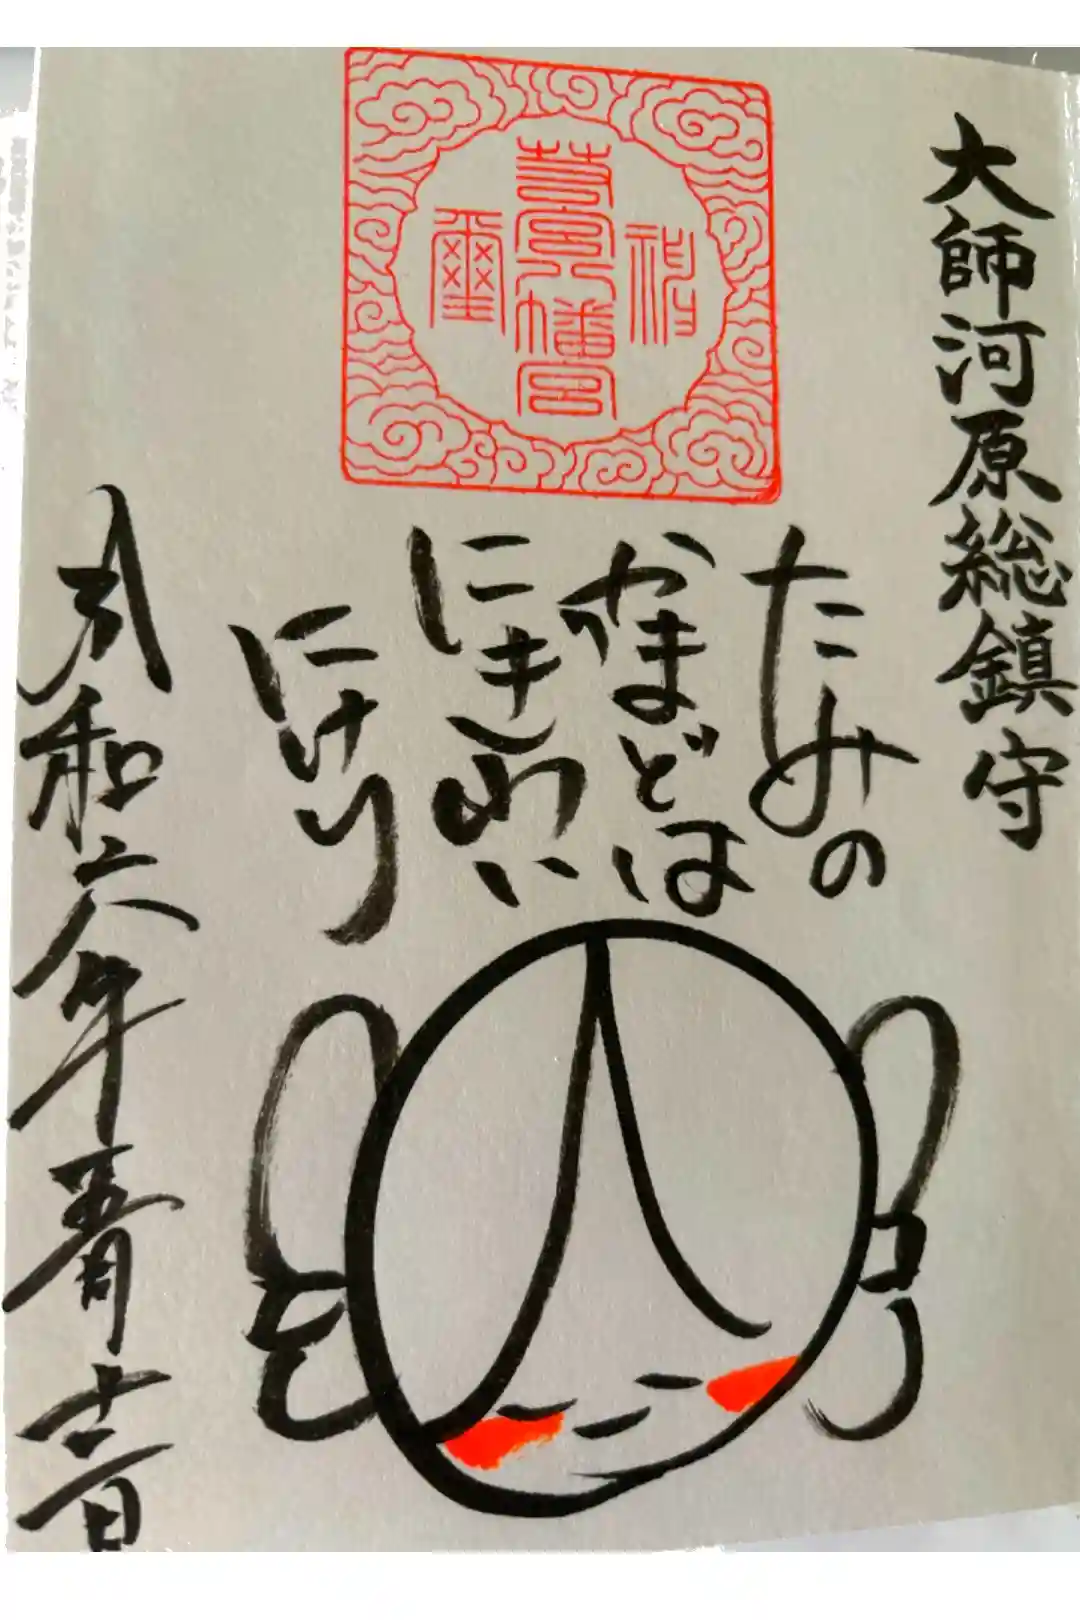 大師河原総鎮守
若宮八幡宮
神
璽
たみの
かまどは
にきわい
にけり
令和六年五月十二日